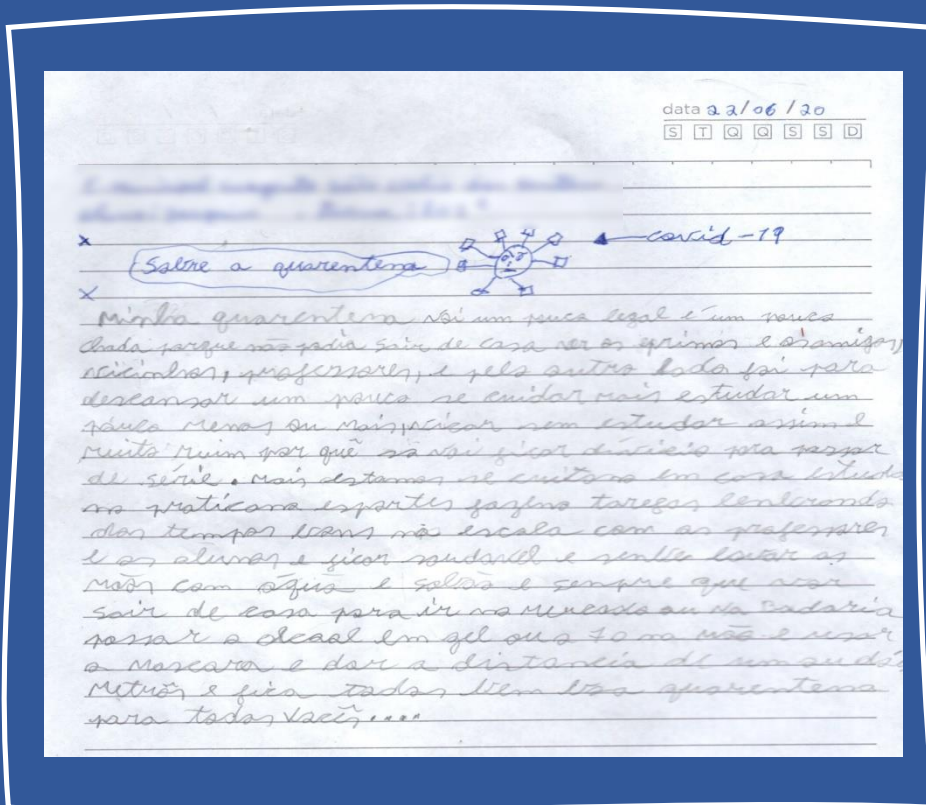 data 22/06/20
S T Q Q S S D
covid-19
Sobre a quarentena
Minha quarentena foi um pouco legal e um pouco
chada porque não podia sair de casa ver os primos e os amigos,
vicinhos, professores, e pelo outro lado foi para
descansar um pouco se cuidar mais estudar um
pouco menos ou mais, ficar sem estudar assim é
muito ruim por quê so vai ficar dificio para passar
de série. mais estamos se cuitano em casa estuda
no praticano esportes fazeno tarefas lembrando
dos tempos bons na escola com os professores
e os alunos e ficar saudavel e senpre lavar as
maos com água e sabão e sempre que vor
sair de casa para ir no mercado ou na padaria
passar o alcool em gel ou o 70 na mão e usar
a mascara e dar a distancia de um ou dois
metros e fica todos bem boa quarentena
para todos vocês....